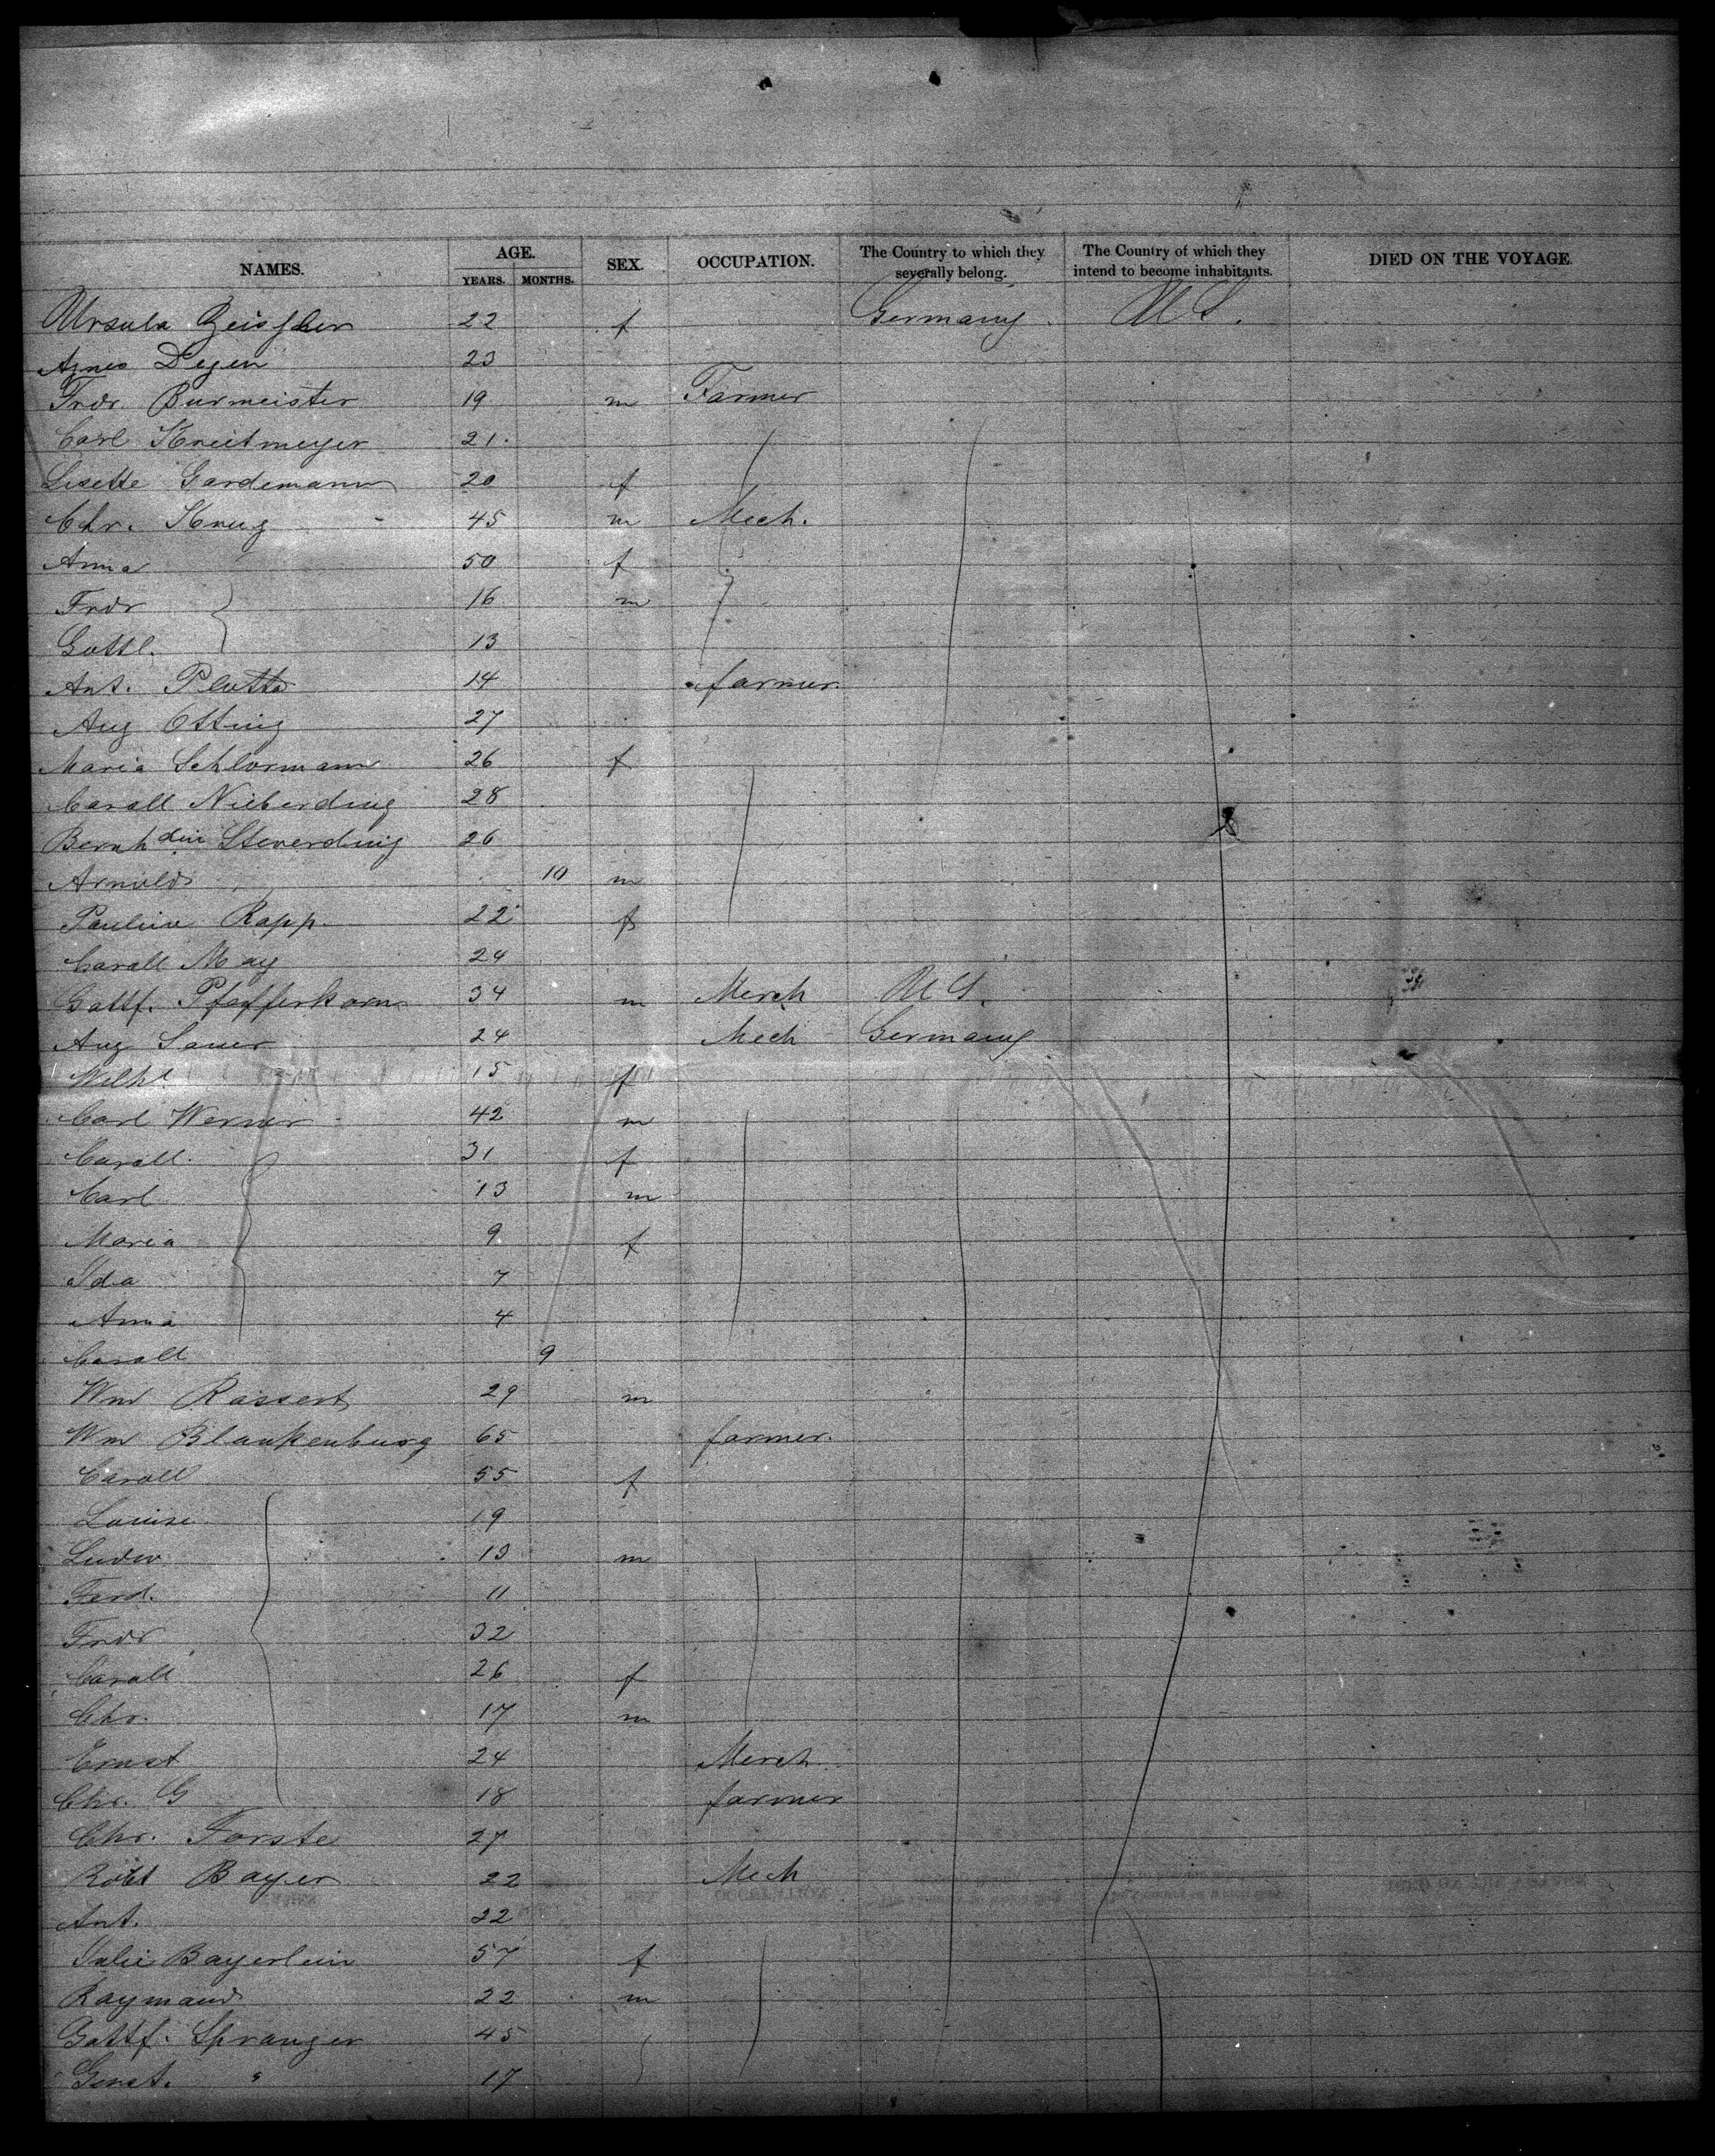 NAMES. AGE. YEARS. MONTHS. SEX. OCCUPATION. The Country to which they severally belong. The Country of which they intend to become inhabitants. DIED ON THE VOYAGE.
Ursula 22 f Germany U S.
Agnes Degen 23
Frdr. Burmeister 19 m Farmer
Carl Kreitmeyer 21
Lisette Gardemann 20 f
Chr. Krug 45 m Mech.
Anna 50 f
Frdr 16 m
Gottl. 13
Ant. 14 farmer.
Aug Otting 27
Maria Schlormann 26 f
Caroll Nieberding 28
Bernhdin Steverding 26
Arnold 10 m
Pauline Rapp. 22 f
Caroll May 24
Gottf. Pfefferkorn 34 m Merch U S.
Aug Sauer 24 Mech Germany
Wilhl 15 f
Carl Werner 42 m
Caroll. 31 f
Carl 13 m
Maria 9 f
Ida 7
Anna 4
Caroll 9
Wm Rassert 29 m
Wm Blankenburg 65 farmer.
Caroll 55 f
Louise 19
Ludw 13 m
Ferd. 11
Frdr 32
Caroll 26 f
Chr. 17 m
Ernst 24 Merch
Chr. G 18 farmer
Chr. Forste 27
Robt Bayer 22 Mech
Ant. 22
Julie Bayerlein 57 f
Raymand 22 m
Gottf. Spranger 45
17